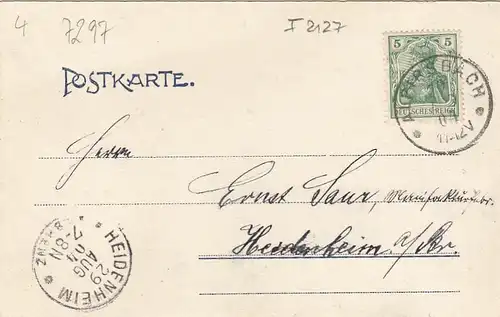 4 7297 I 2127
POSTKARTE.
5
DEUTSCHES REICH
11-12V
Herrn
Ernst Saur,
Heidenheim a/Br.
HEIDENHEIM
29 AUG 04
7-8N